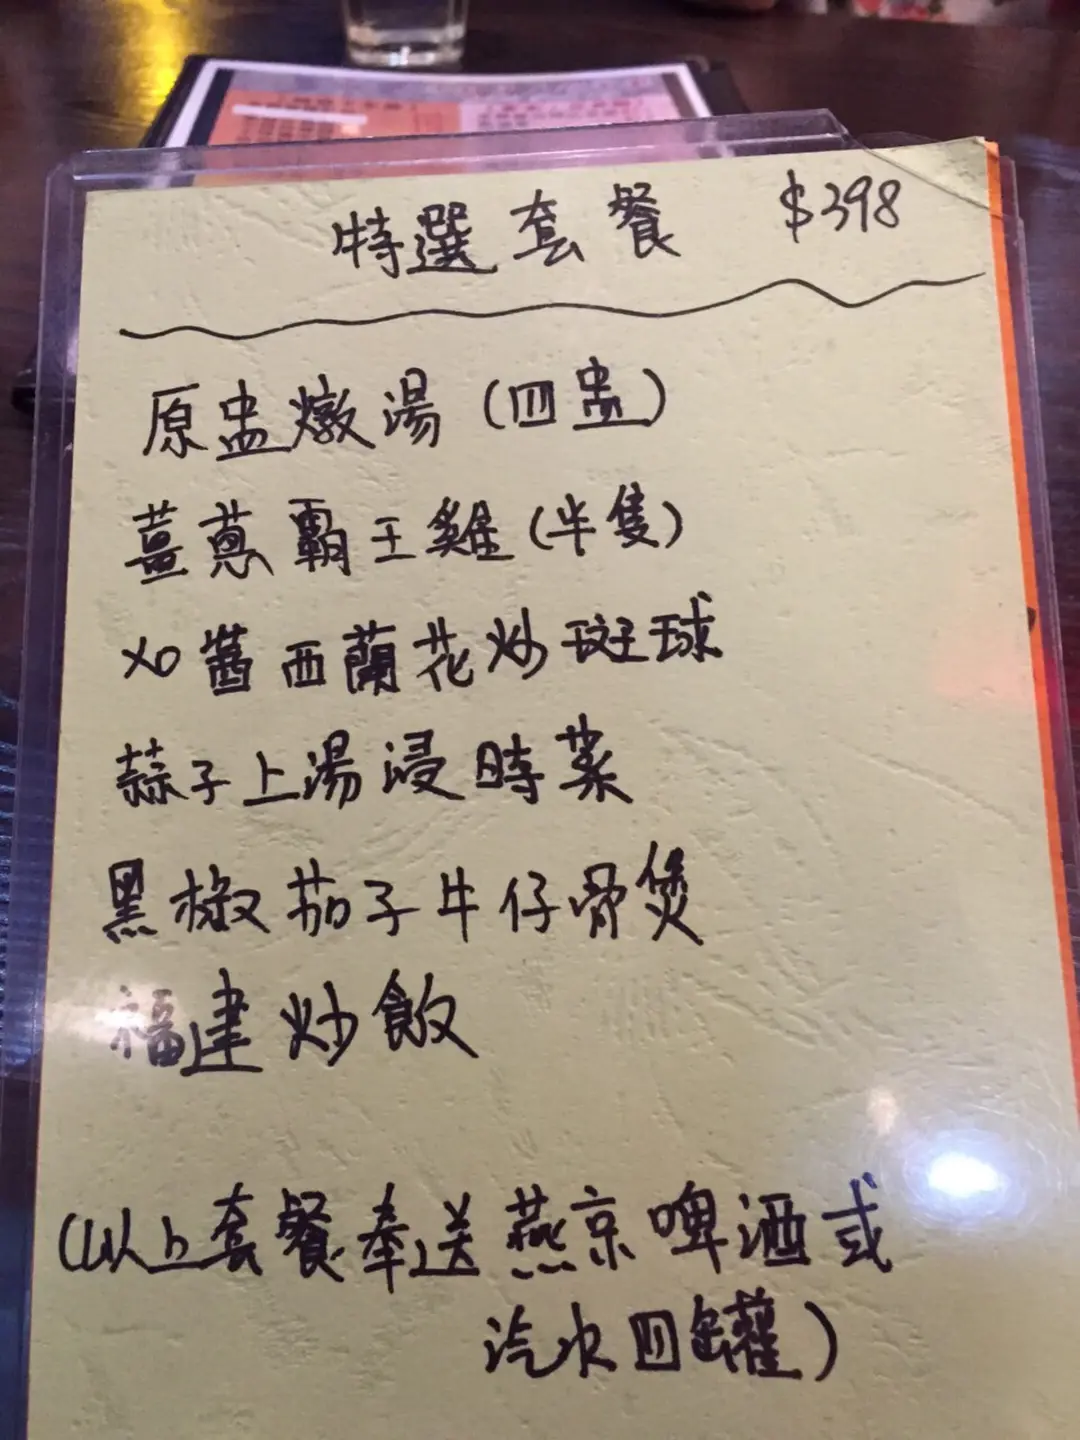 特選套餐 $398
原盅燉湯(四盅)
薑蔥霸王雞(半隻)
XO醬西蘭花炒斑球
蒜子上湯浸時菜
黑椒茄子牛仔骨煲
福建炒飯
(以上套餐奉送燕京啤酒或
汽水四罐)